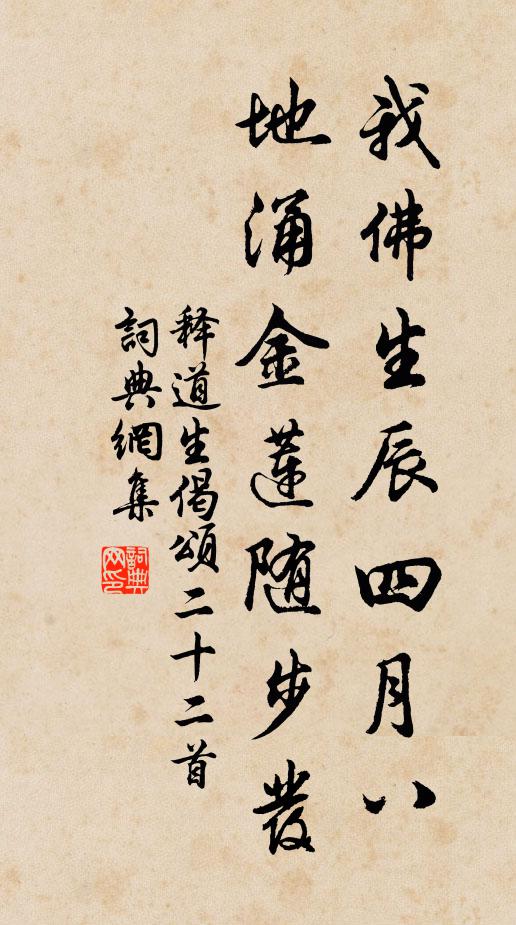 我佛生辰四月八
地涌金莲随步發
释道生偈頌二十二首
詞典網集
詞典网印